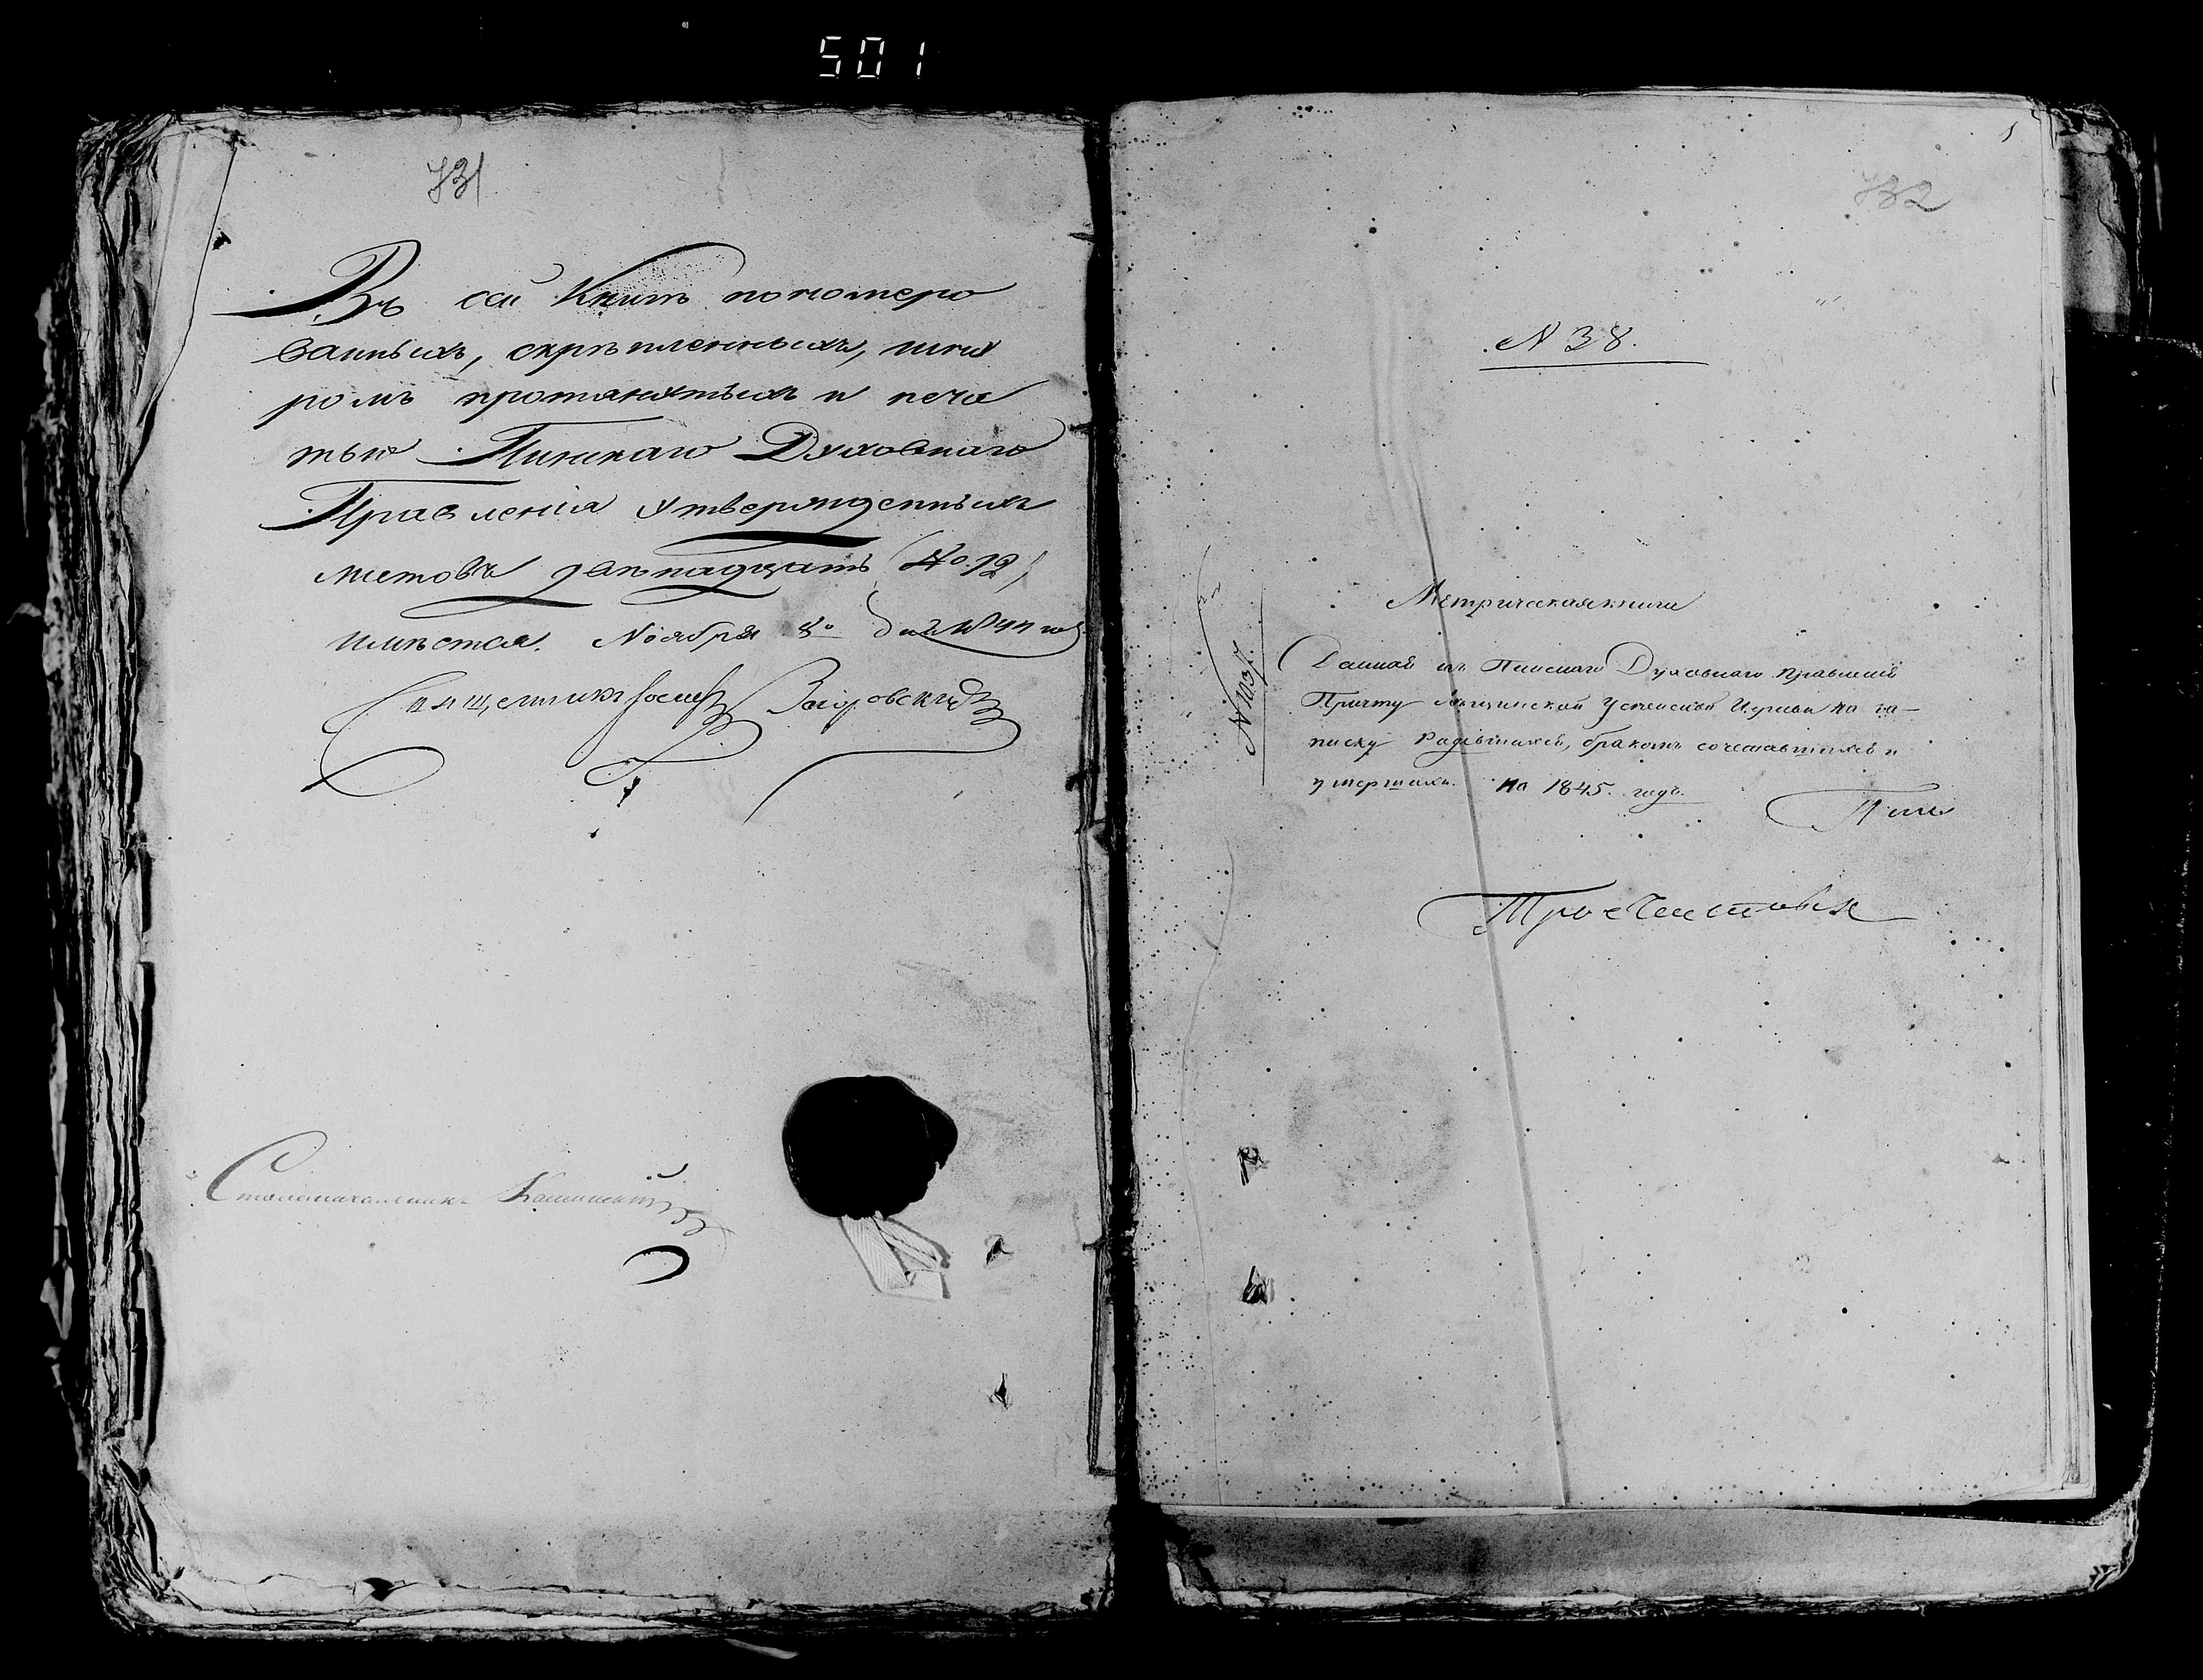 501
731
Въ сей Книгѣ пономеро
ванныхъ, скрѣпленныхъ, шну
ромъ протянутыхъ и печа
тью Пинскаго Духовнаго
Правленія утвержденныхъ
листовъ двѣнадцать (No. 12)
имѣется. Ноября 8о дня 1844 год
Священникъ Іосифъ Загоровскій
Столоначальникъ
1
732
N 38.
N 1037.
Метрическая книга
Данная изъ Пинскаго Духовнаго Правленія
Причту Успенской Церкви на за-
писку Родившихся, бракомъ сочетавшихся и
умершихъ. на 1845. годъ.